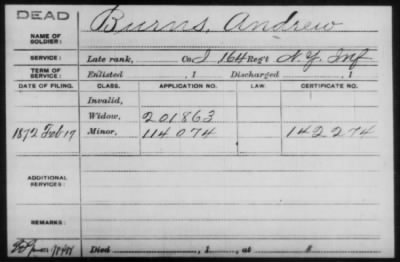 DEAD
NAME OF SOLDIER: Burns, Andrew
SERVICE: Late rank, Co. I 164 Reg't N.Y. Inf
TERM OF SERVICE: Enlisted , 1 Discharged , 1
DATE OF FILING. CLASS. APPLICATION NO. LAW. CERTIFICATE NO.
Invalid,
Widow, 201863
1872 Feb 17 Minor, 114074 142274
ADDITIONAL SERVICES:
REMARKS:
Died , 1 , at